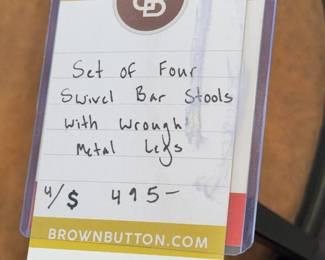 Set of Four
Swivel Bar Stools
with wrough
Metal Legs
4/$ 495-
BROWNBUTTON.COM